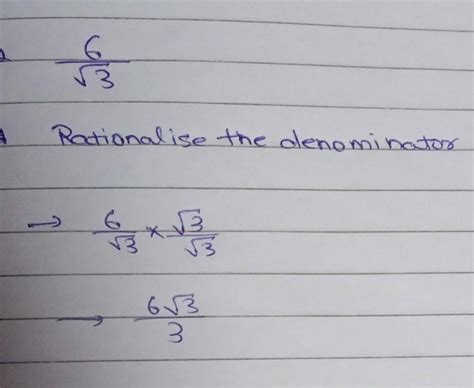 6/√3
Rationalise the denominator
→ 6/√3 × √3/√3
→ 6√3/3